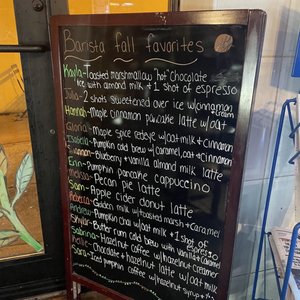 Barista fall favorites
Kayla-Toasted marshmallow hot chocolate
w/ almond milk + 1 shot of espresso
Julia-2 shots sweetened over ice w/ cinnamon
cream
Hannah-Maple Cinnamon pancake latte w/ oat
Gloria-Maple spice redeye w/ oat milk + cinnamon
Isabella-Pumpkin cold brew w/ caramel, oat + cinnamon
-Blueberry + vanilla almond milk latte
Erin-Pumpkin pancake cappuccino
Melissa-Pecan pie latte
Sam-Apple cider donut latte
Rebecca-Golden milk w/ toasted marsh + caramel
Andrew-Pumpkin chai w/ oat milk + 1 shot of
espresso
-Butter rum cold brew w/ vanilla + caramel
Sabrina-Hazelnut coffee w/ hazelnut creamer
-Chocolate + hazelnut latte w/ oat milk
Sara-Iced pumpkin coffee w/ hazelnut syrup +